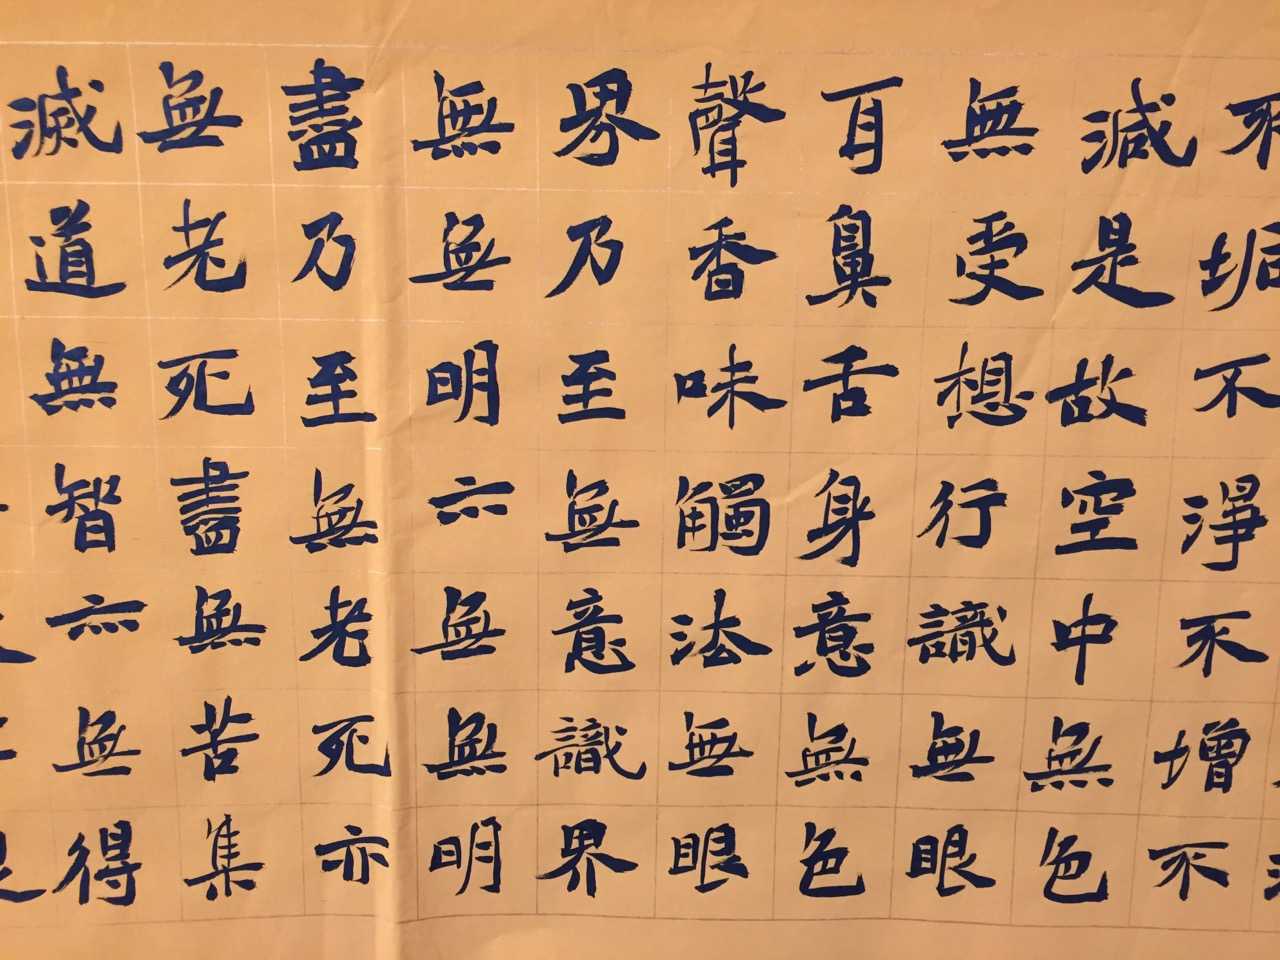 不垢不淨不增不
減是故空中無色
無受想行識無眼
耳鼻舌身意無色
聲香味觸法無眼
界乃至無意識界
無無明亦無無明
盡乃至無老死亦
無老死盡無苦集
滅道無智亦無得